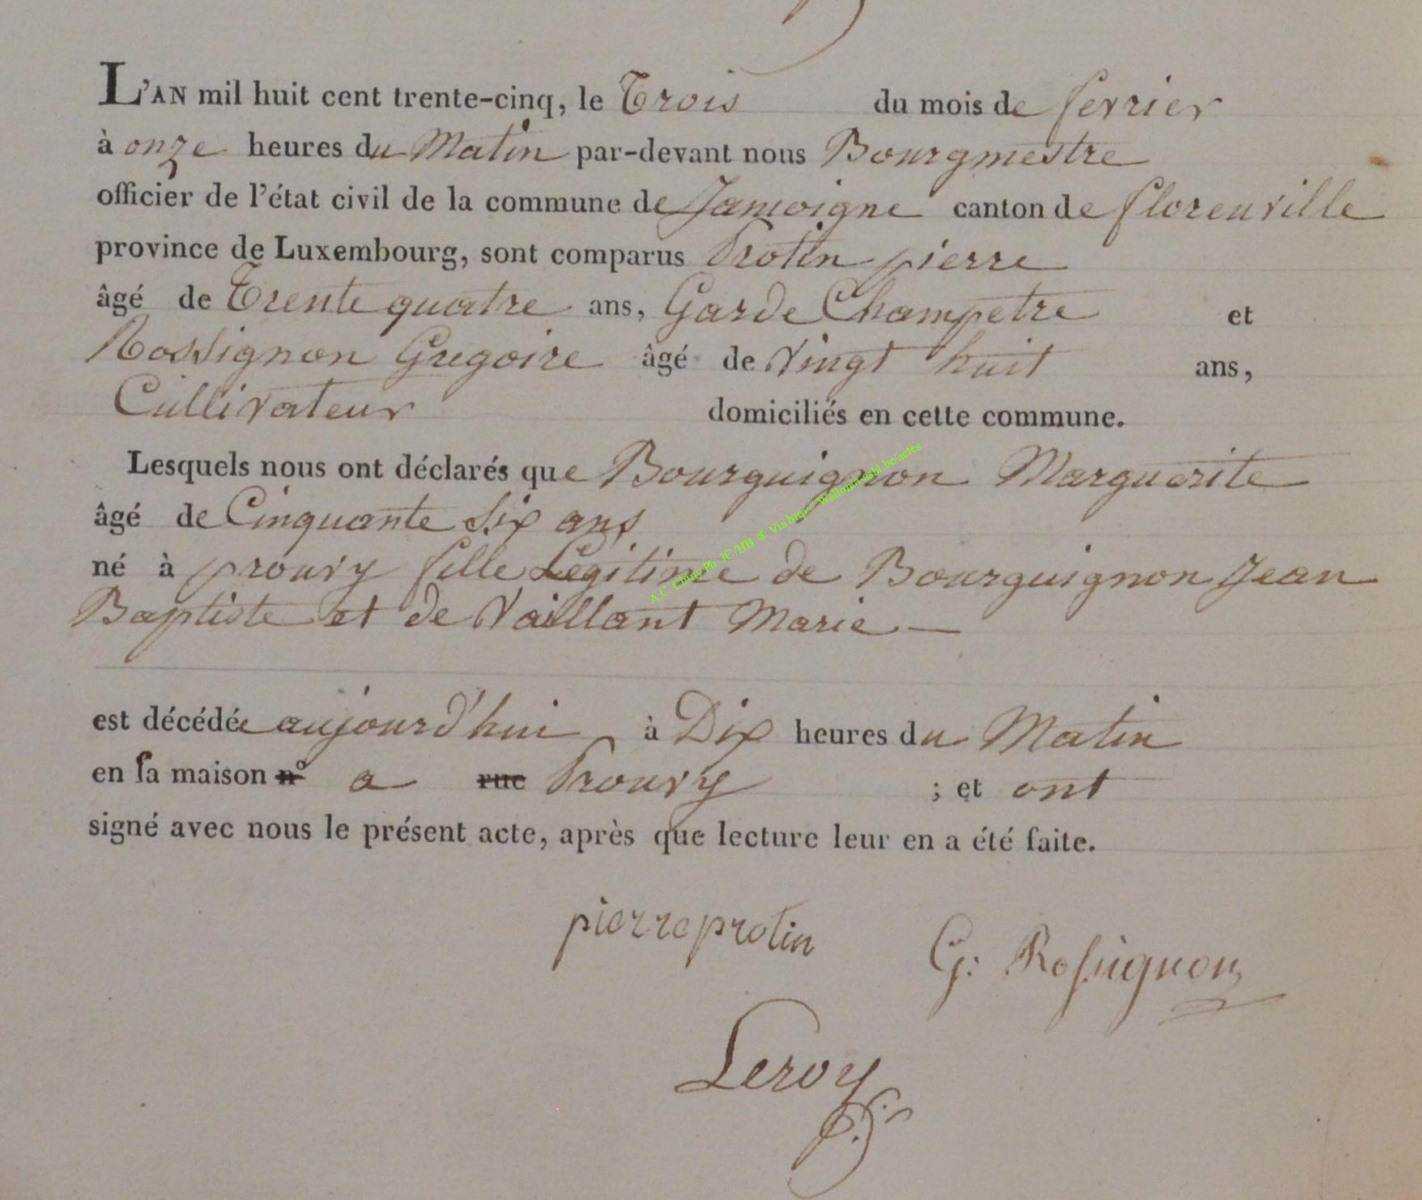 L'AN mil huit cent trente-cinq, le Trois du mois de fevrier
à onze heures du Matin par-devant nous Bourgmestre
officier de l'état civil de la commune de Jamoigne canton de florenville
province de Luxembourg, sont comparus Protin pierre
âgé de Trente quatre ans, Garde Champetre et
Rossignon Gregoire âgé de Vingt huit ans,
Cultivateur domiciliés en cette commune.
Lesquels nous ont déclarés que Bourguignon Marguerite
âgé de Cinquante Six ans
né à prouvy fille Légitime de Bourguignon Jean
Baptiste et de Vaillant Marie —
est décédée aujourd'hui à Dix heures du Matin
en sa maison n° a rue Prouvy ; et ont
signé avec nous le présent acte, après que lecture leur en a été faite.
pierre protin G: Rossignon
Leroy